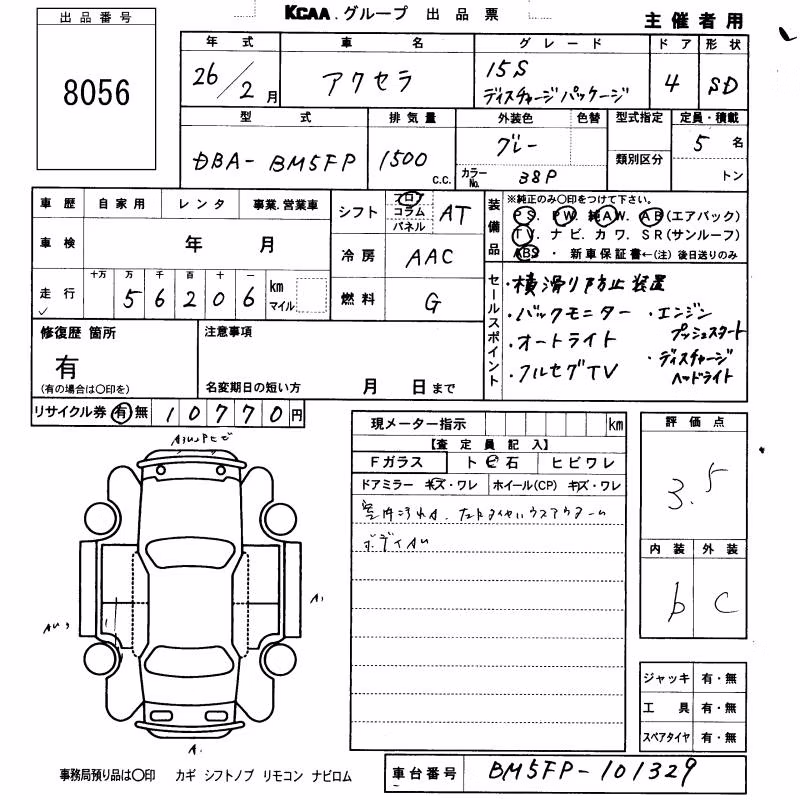 KCAA.グループ 出品票
主催者用
出品番号
8056
年式 車名 グレード ドア 形状
26/2月 アクセラ 15S ディスチャージパッケージ 4 SD
型式 排気量 外装色 色替 型式指定 定員・積載
DBA-BM5FP 1500 c.c. グレー 5名
カラーNo. 38P 類別区分 トン
車歴 自家用 レンタ 事業.営業車
車検 年 月
走行 十万 万 千 百 十 一 km マイル
5 6 2 0 6
シフト フロア コラム パネル AT
冷房 AAC
燃料 G
装備品
※純正のみ○印をつけて下さい。
PS. PW. 純AW. AB(エアバック)
TV. ナビ. カワ. SR(サンルーフ)
ABS ・ 新車保証書←(注)後日送りのみ
セールスポイント
・横滑り防止装置
・バックモニター ・エンジンプッシュスタート
・オートライト
・フルセグTV ・ディスチャージヘッドライト
修復歴 箇所
有
(有の場合は○印を)
注意事項
名変期日の短い方 月 日まで
リサイクル券 有 無 10770円
現メーター指示 km
【査定員記入】
Fガラス ト ビ 石 ヒビワレ
ドアミラー キズ・ワレ ホイール(CP) キズ・ワレ
室内汚れA.
ボディAU
評価点
3.5
内装 外装
b C
A1
A.
ジャッキ 有・無
工具 有・無
スペアタイヤ 有・無
事務局預り品は○印 カギ シフトノブ リモコン ナビロム
車台番号 BM5FP-101329